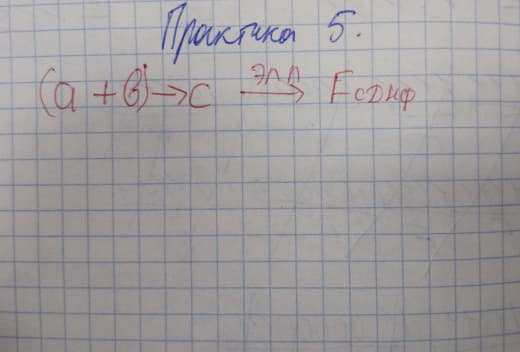 Практика 5.
(a + b) → c ЭЛП → FСДНФ